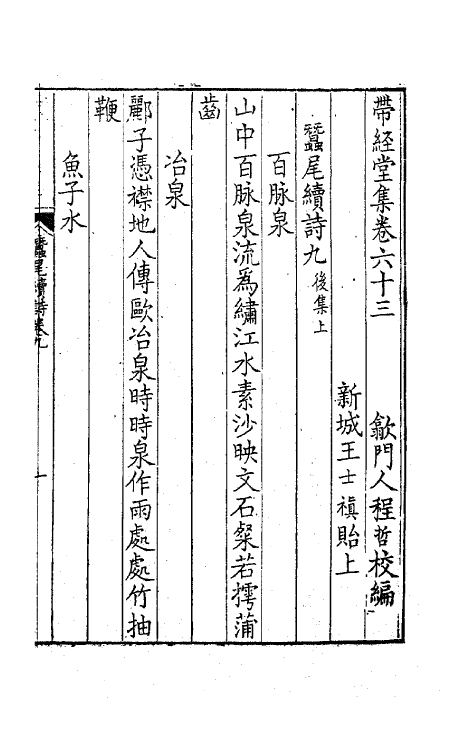 帶經堂集卷六十三　歙門人程哲校編
新城王士禛貽上
蠶尾續詩九後集上
百脉泉
山中百脉泉流爲繡江水素沙映文石粲若摴蒲
齒
冶泉
酈子憑襟地人傳歐冶泉時時泉作雨處處竹抽
鞭
魚子水
蠶尾續詩卷九　一